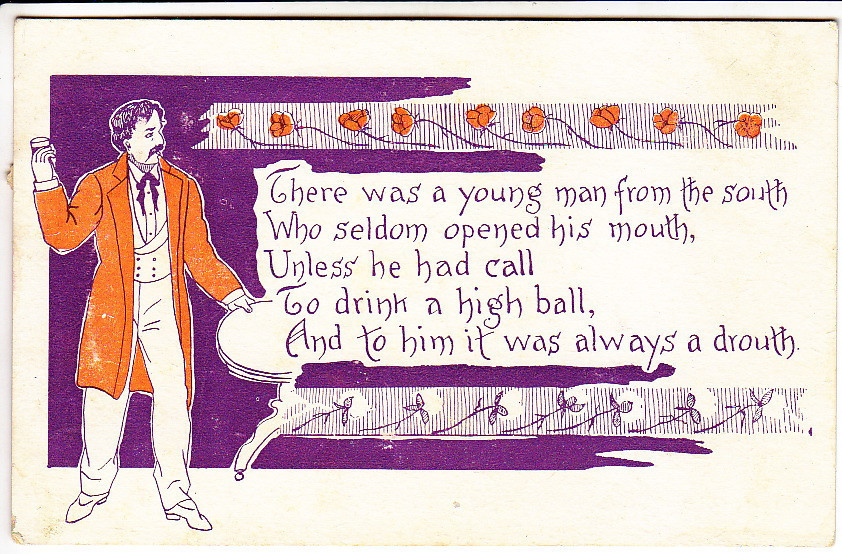 There was a young man from the south
Who seldom opened his mouth,
Unless he had call
To drink a high ball,
And to him it was always a drouth.